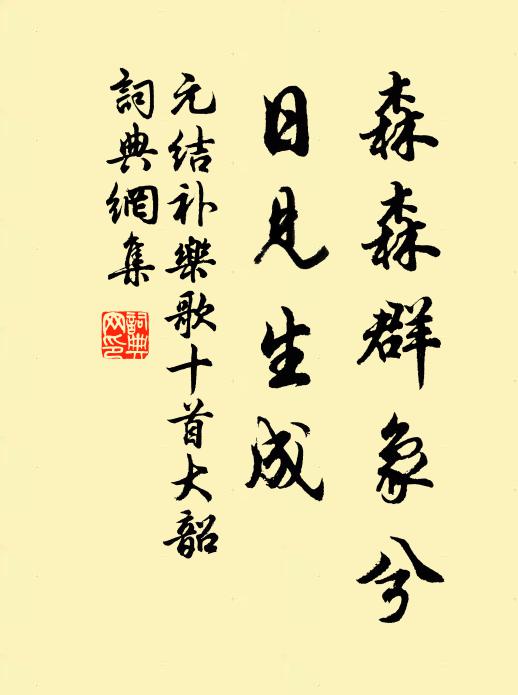 森森群象兮
日見生成
元结补樂歌十首大韶
詞典網集
詞典網印